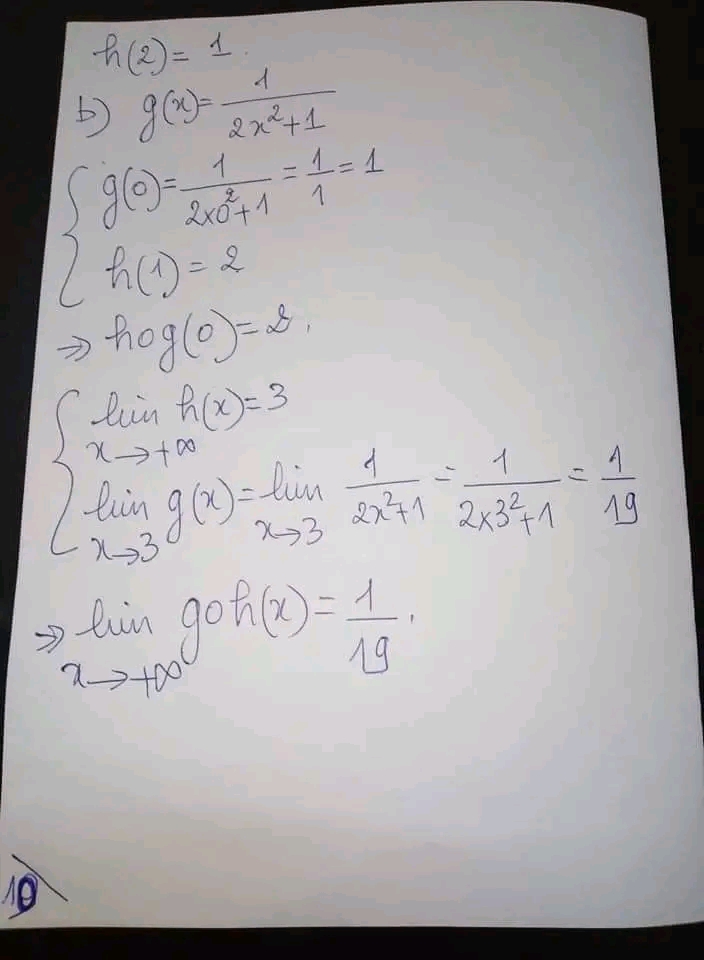 h(2) = 1.
b) g(x) = 1/(2x²+1)
{ g(0) = 1/(2×0²+1) = 1/1 = 1
h(1) = 2
⇒ hog(0) = 2.
{ lim h(x) = 3
x→+∞
lim g(x) = lim 1/(2x²+1) = 1/(2×3²+1) = 1/19
x→3 x→3
⇒ lim goh(x) = 1/19.
x→+∞
10